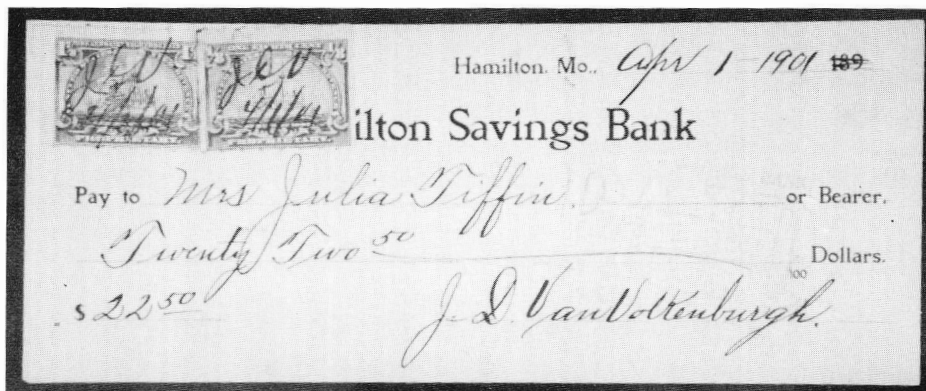 Hamilton. Mo., Apr 1 1901 189
ilton Savings Bank
Pay to Mrs Julia Tiffin or Bearer,
Twenty Two 50 Dollars.
100
$ 22 50 J. D. VanVolkenburgh.